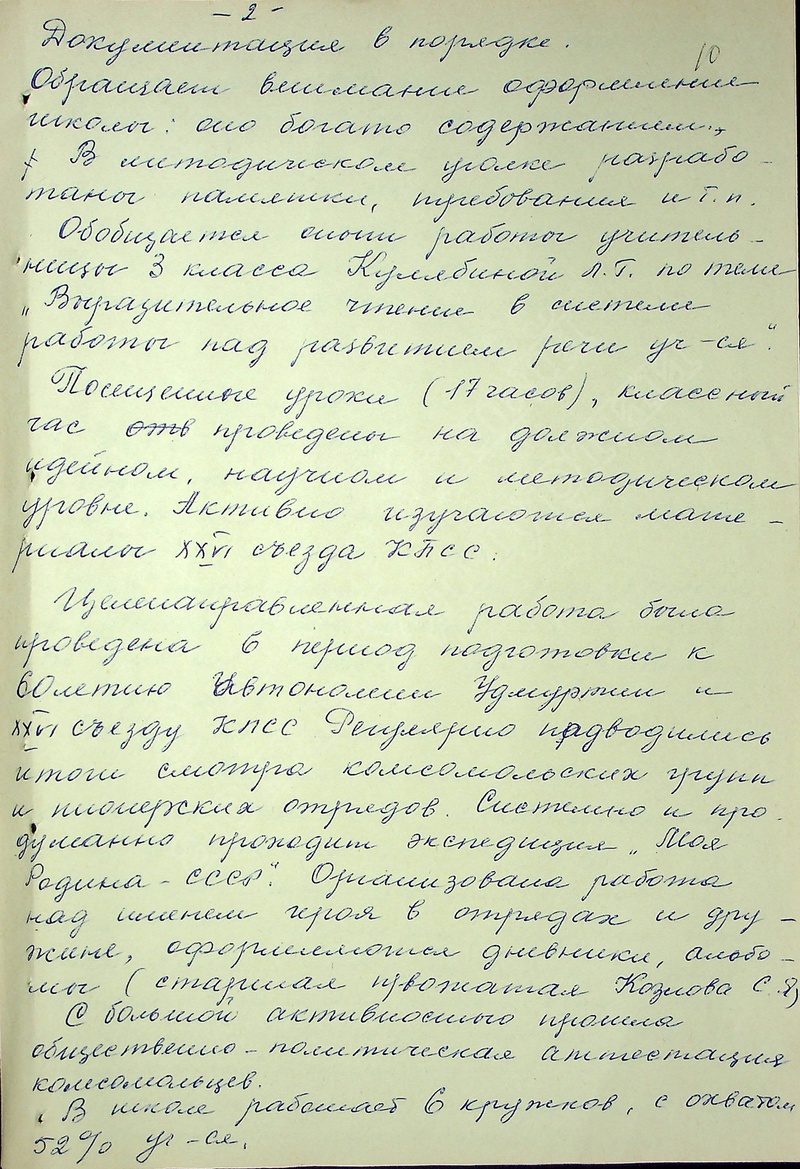 - 2 -
Документация в порядке.
10
Обращает внимание оформление
школы: оно богато содержанием.
В методическом уголке разрабо-
таны памятки, требования и т.п.
Обобщается опыт работы учитель-
ницы 3 класса Кулябиной Л.Т. по теме
„Выразительное чтение в системе
работы над развитием речи уч-ся".
Посещенные уроки (17 часов), классный
час отв проведены на должном
идейном, научном и методическом
уровне. Активно изучаются мате-
риалы XXVI съезда КПСС.
Целенаправленная работа была
проведена в период подготовки к
60летию Автономии Удмуртии и
XXVI съезду КПСС Регулярно подводились
итоги смотра комсомольских групп
и пионерских отрядов. Системно и про-
думанно проходит экспедиция „Моя
Родина - СССР". Организована работа
над именем героя в отрядах и дру-
жине, оформляются дневники, альбо-
мы (старшая п/вожатая Козлова С.Я)
С большой активностью прошла
общественно-политическая аттестация
комсомольцев.
В школе работает 6 кружков, с охватом
52% уч-ся.